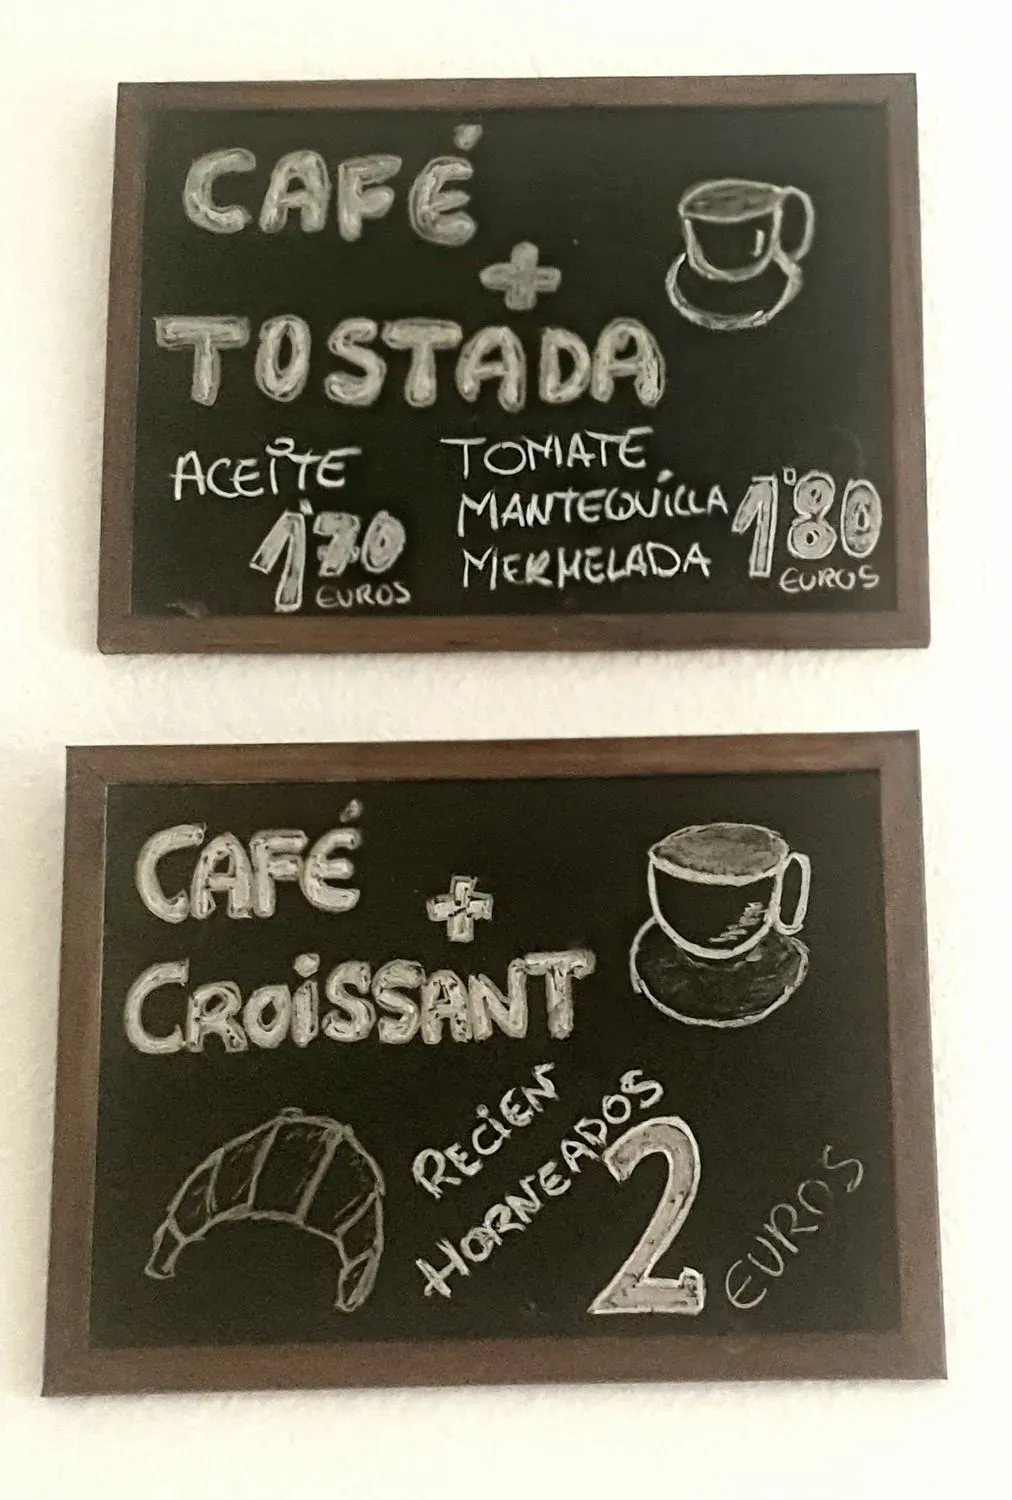 CAFÉ
+
TOSTADA
ACEITE
1'70
EUROS
TOMATE
MANTEQUILLA
MERMELADA
1'80
EUROS
CAFÉ
+
CROISSANT
RECIEN
HORNEADOS
2
EUROS